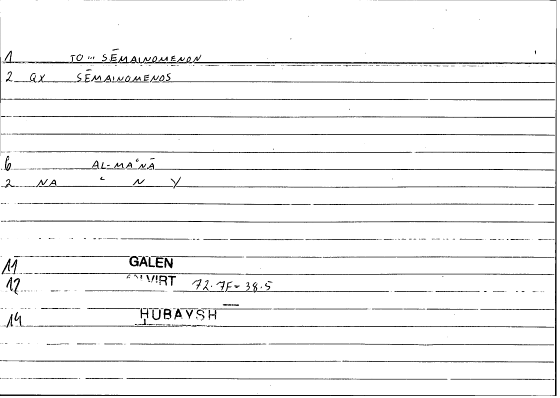 1 TO... SĒMAINOMENON
2 QX SĒMAINOMENOS
6 AL-MAʿNĀ
2 NA ʿ N Y
11 GALEN
12 VIRT 72.7F=38.5
14 HUBAYSH